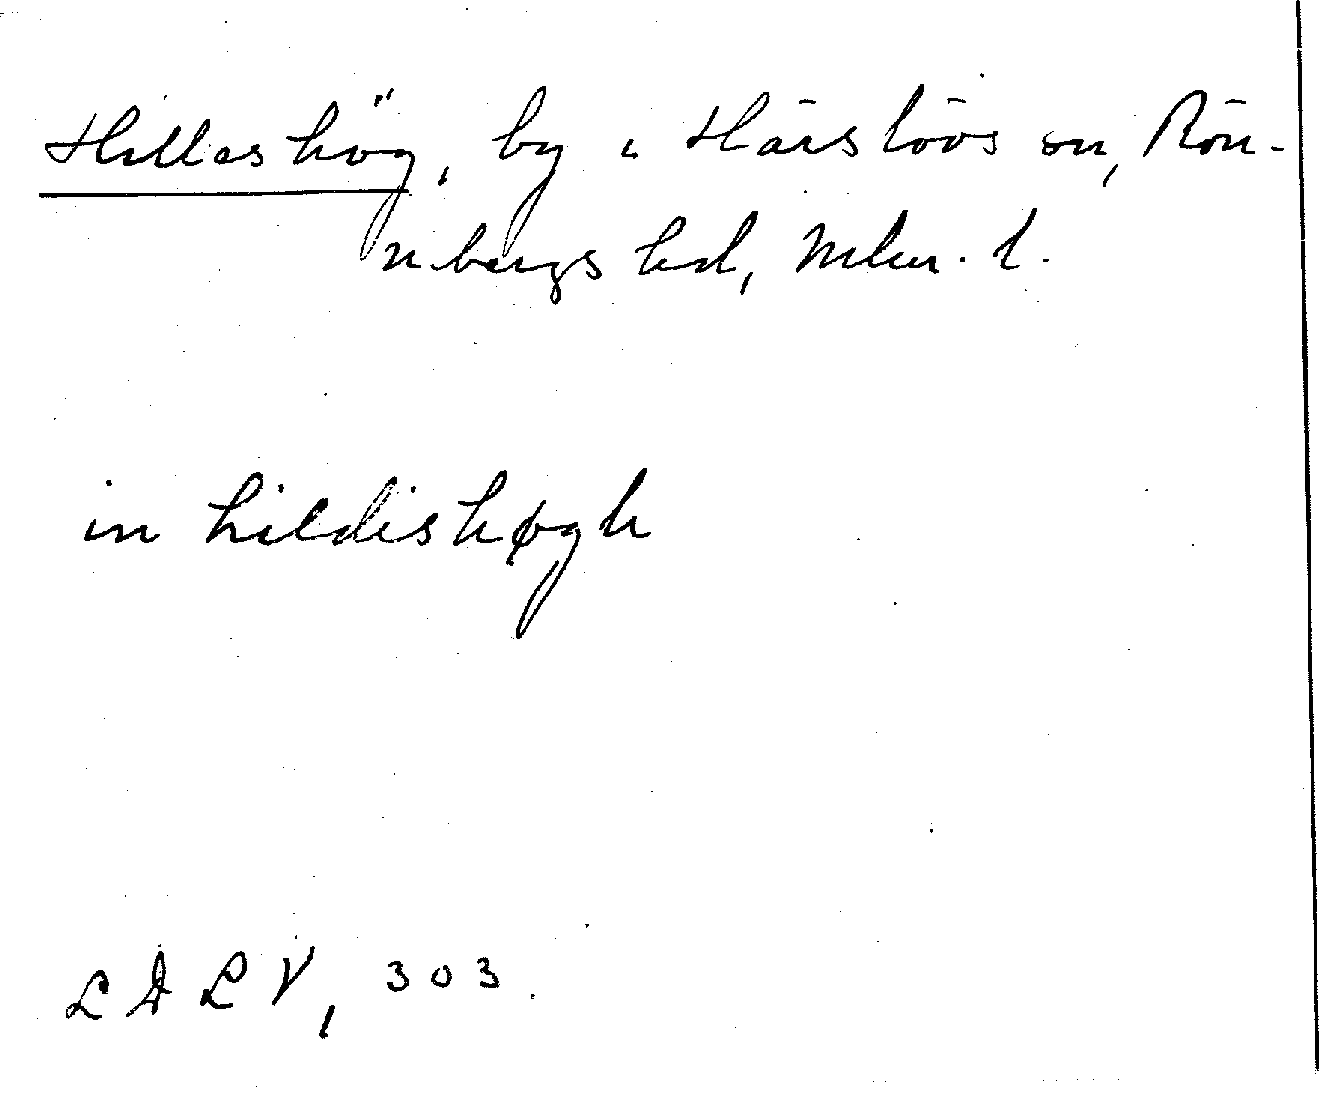 Hilleshög, by i Härslövs sn, Rön-
nebergs hd, Mlm. l.
in hildishøgh
LDLV, 303.